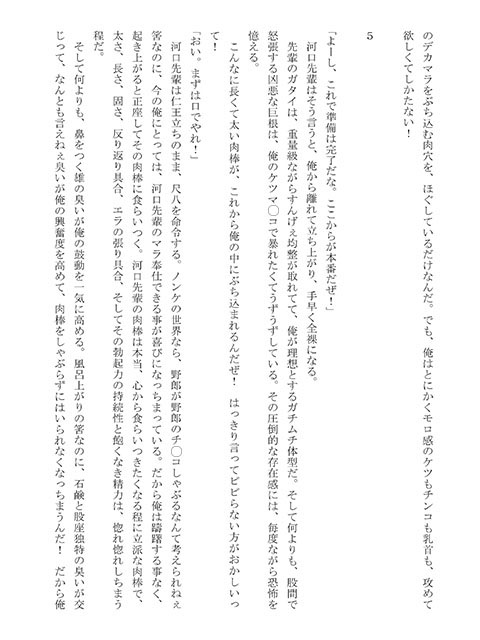 のデカマラをぶち込む肉穴を、ほぐしているだけなんだ。でも、俺はとにかくモロ感のケツもチンコも乳首も、攻めて
欲しくてしかたない！
5
「よーし、これで準備は完了だな。ここからが本番だぜ！」
河口先輩はそう言うと、俺から離れて立ち上がり、手早く全裸になる。
先輩のガタイは、重量級ながらすんげぇ均整が取れてて、俺が理想とするガチムチ体型だ。そして何よりも、股間で
怒張する凶悪な巨根は、俺のケツマ〇コで暴れたくてうずうずしている。その圧倒的な存在感には、毎度ながら恐怖を
憶える。
こんなに長くて太い肉棒が、これから俺の中にぶち込まれるんだぜ！　はっきり言ってビビらない方がおかしいっ
て！
「おい。まずは口でやれ！」
河口先輩は仁王立ちのまま、尺八を命令する。ノンケの世界なら、野郎が野郎のチ〇コしゃぶるなんて考えられねぇ
筈なのに、今の俺にとっては、河口先輩のマラ奉仕できる事が喜びになっちまっている。だから俺は躊躇する事なく、
起き上がると正座してその肉棒に食らいつく。河口先輩の肉棒は本当、心から食らいつきたくなる程に立派な肉棒で、
太さ、長さ、固さ、反り返り具合、エラの張り具合、そしてその勃起力の持続性と飽くなき精力は、惚れ惚れしちまう
程だ。
そして何よりも、鼻をつく雄の臭いが俺の鼓動を一気に高める。風呂上がりの筈なのに、石鹸と股座独特の臭いが交
じって、なんとも言えねぇ臭いが俺の興奮度を高めて、肉棒をしゃぶらずにはいられなくなっちまうんだ！　だから俺